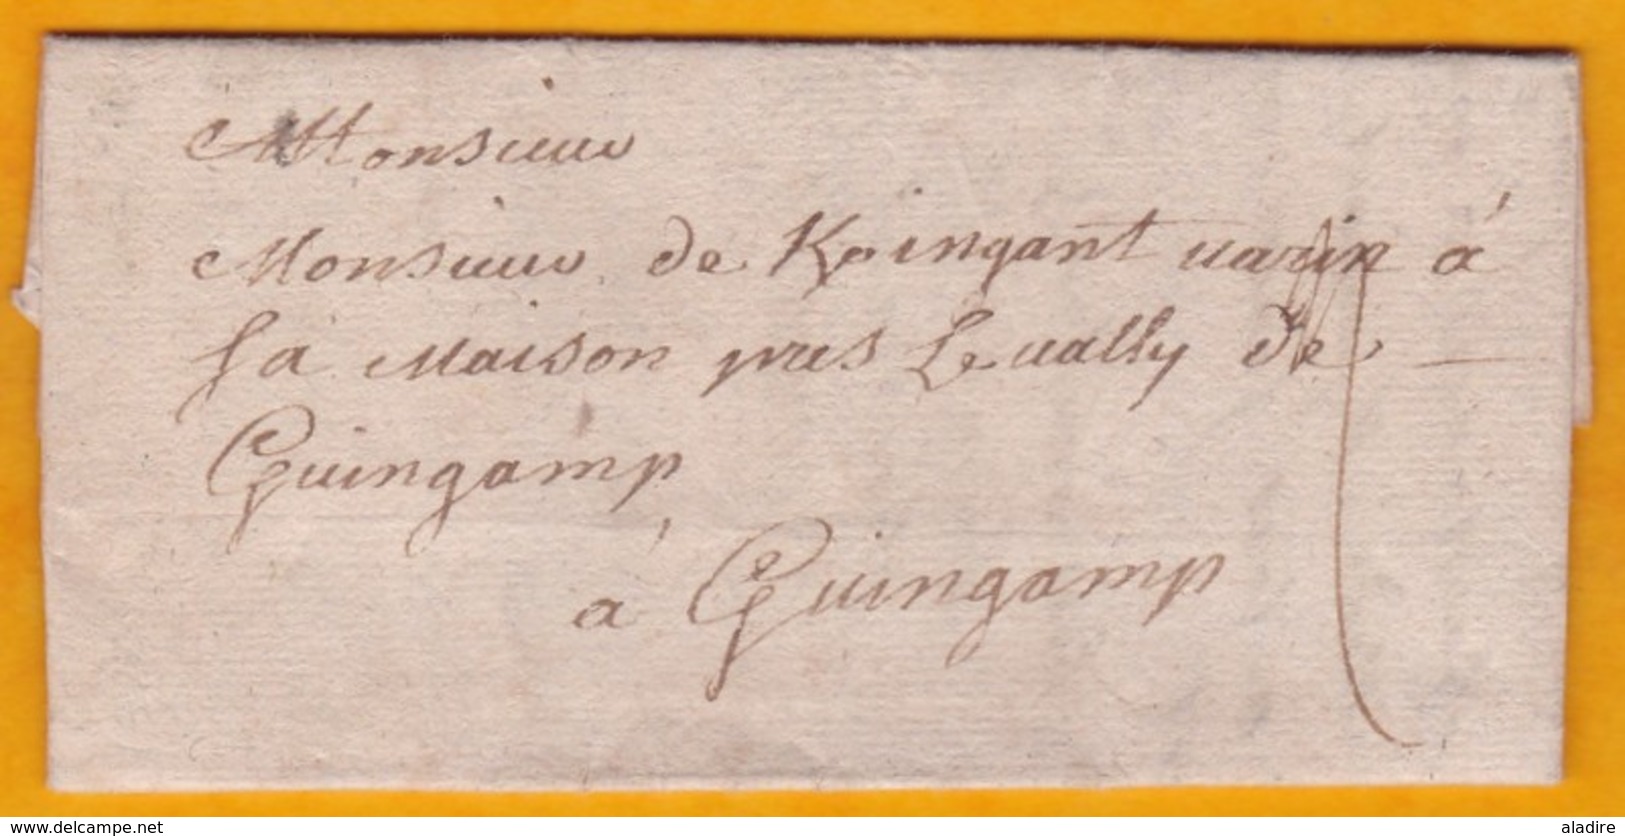 Monsieur
Monsieur de Kringant à
sa maison pres de
Guingamp
à Guingamp
www.delcampe.net
aladire